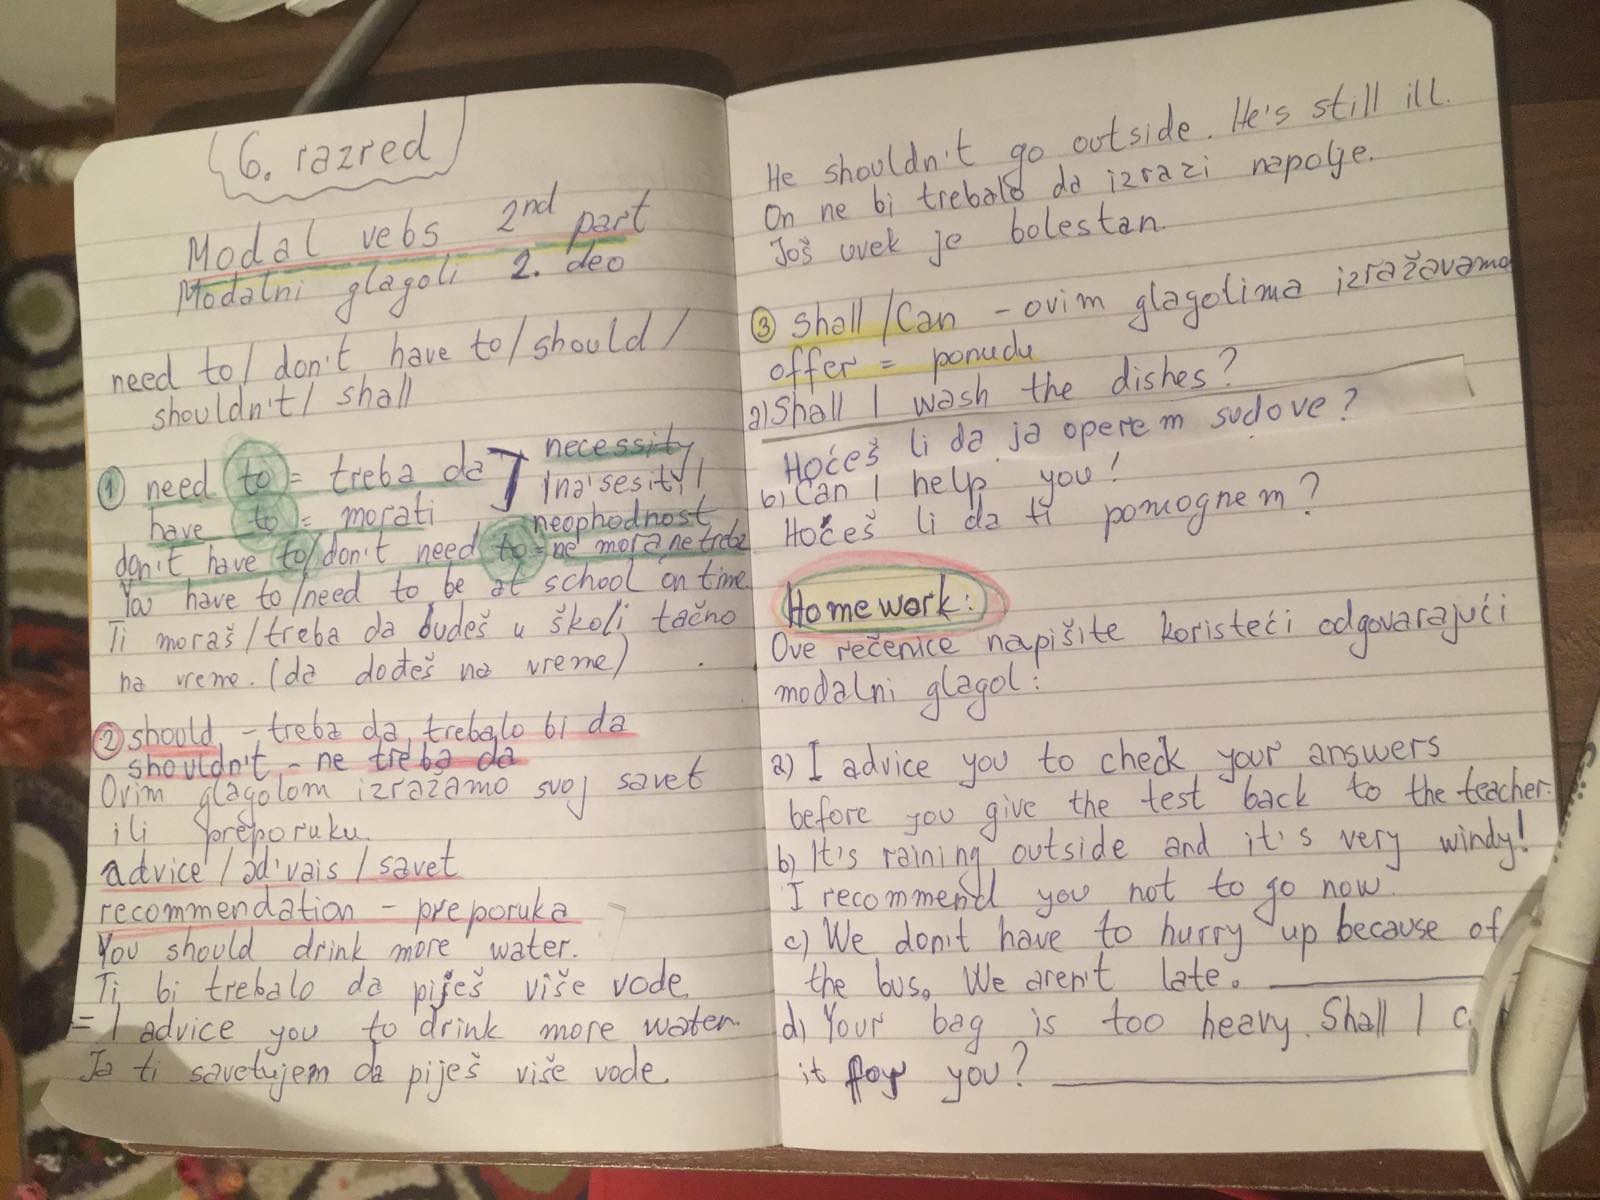 6. razred
Modal vebs 2nd part
Modalni glagoli 2. deo
need to/ don't have to/ should/
shouldn't/ shall
1 need to = treba da ] necessity
/na'sesity/
have to = morati neophodnost
don't have to/don't need to = ne mora ne treba
You have to/need to be at school on time
Ti moraš/treba da budeš u školi tačno
na vreme. (da dođeš na vreme)
2 should - treba da, trebalo bi da
shouldn't - ne treba da
Ovim glagolom izražamo svoj savet
ili preporuku.
advice /əd'vais/ savet
recommendation - preporuka
You should drink more water.
Ti bi trebalo da piješ više vode.
= I advice you to drink more water.
Ja ti savetujem da piješ više vode.
He shouldn't go outside. He's still ill.
On ne bi trebalo da izrazi napolje.
Još uvek je bolestan.
3 Shall /Can - ovim glagolima izražavamo
offer = ponudu
a) Shall I wash the dishes?
Hoćeš li da ja operem sudove?
b) Can I help you!
Hoćeš li da ti pomognem?
Homework:
Ove rečenice napišite koristeći odgovarajući
modalni glagol:
a) I advice you to check your answers
before you give the test back to the teacher.
b) It's raining outside and it's very windy!
I recommend you not to go now.
c) We don't have to hurry up because of
the bus. We aren't late.
d) Your bag is too heavy. Shall I
it for you?